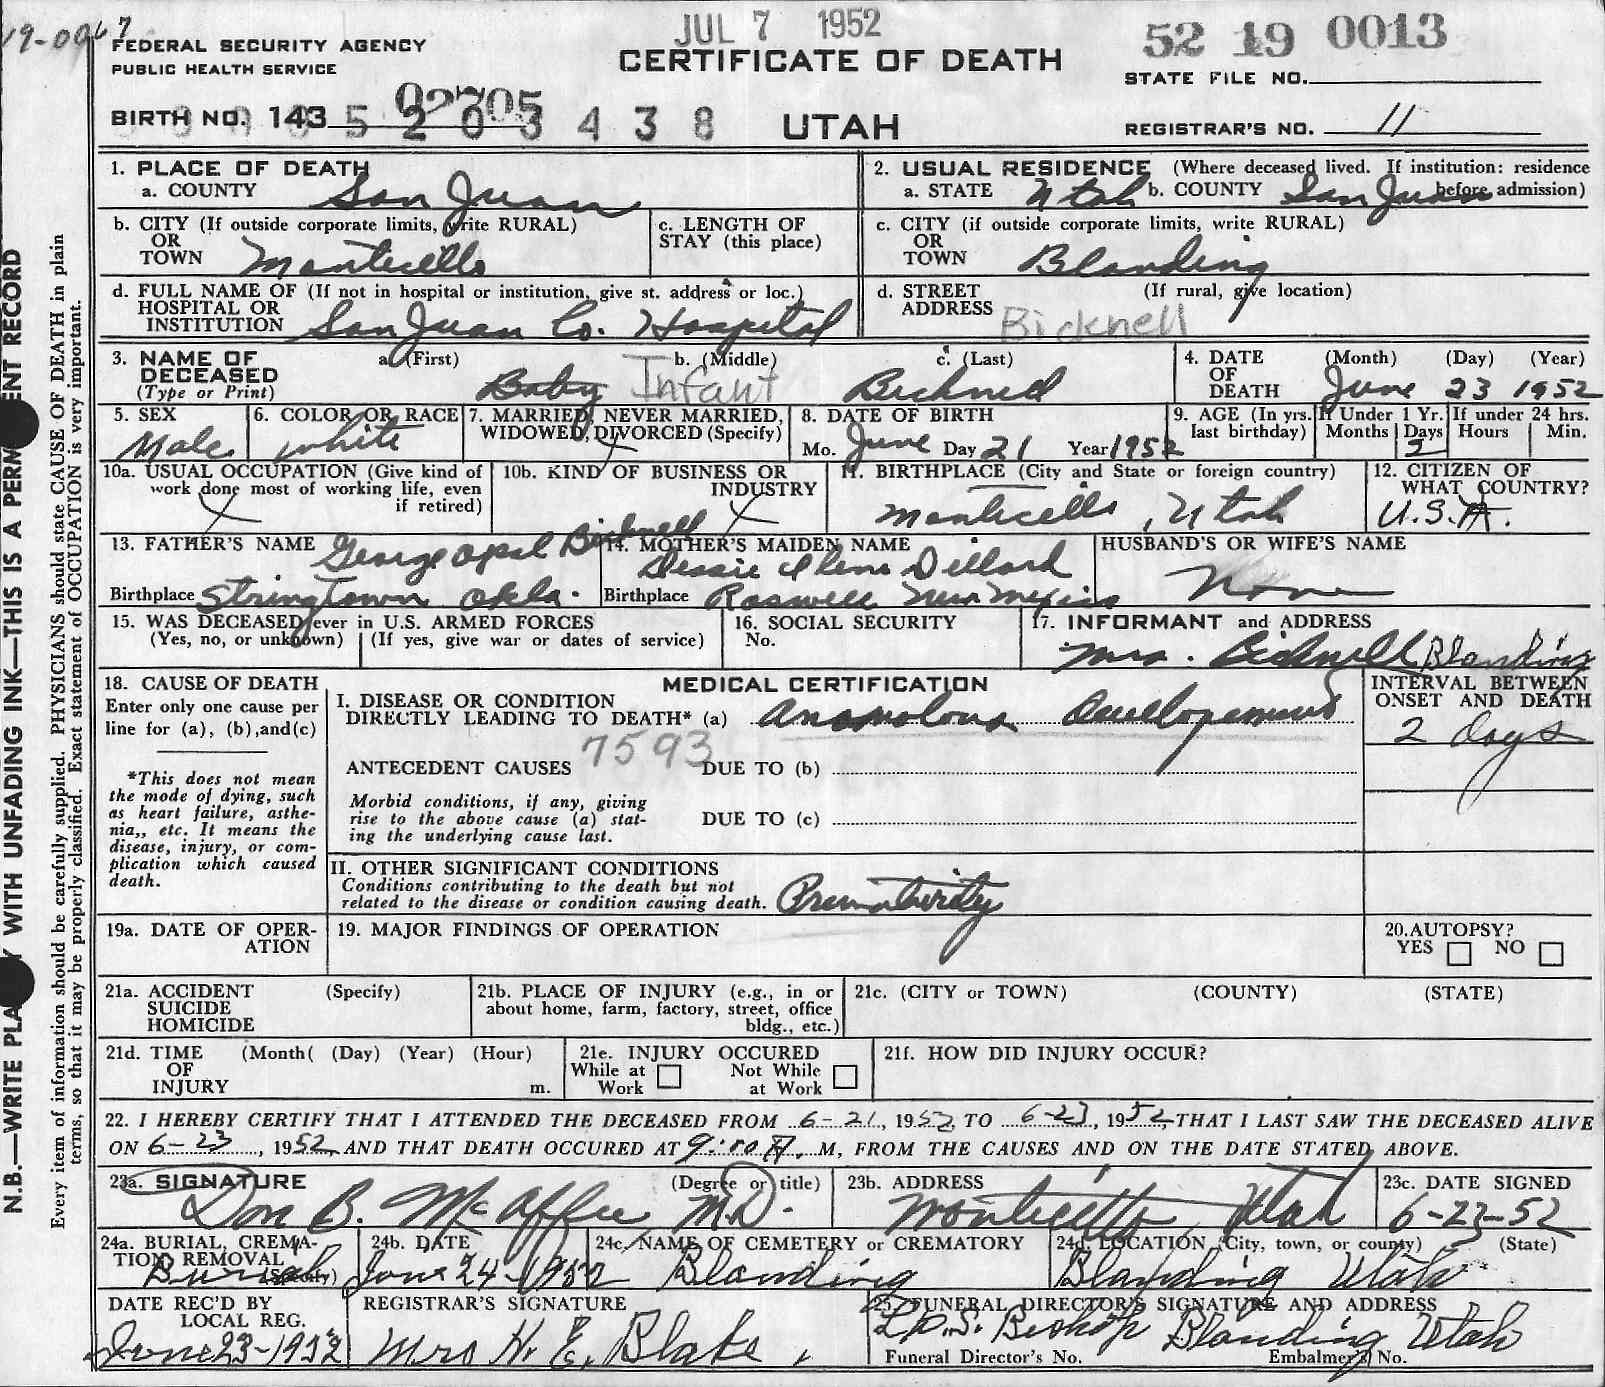 19-0067
JUL 7 1952
52 19 0013
FEDERAL SECURITY AGENCY
PUBLIC HEALTH SERVICE
CERTIFICATE OF DEATH
STATE FILE NO.
BIRTH NO. 143 02705
5 2 0 3 4 3 8
UTAH
REGISTRAR'S NO. 11
1. PLACE OF DEATH
a. COUNTY San Juan
2. USUAL RESIDENCE (Where deceased lived. If institution: residence before admission)
a. STATE Utah b. COUNTY San Juan
b. CITY (If outside corporate limits, write RURAL)
OR
TOWN Monticello
c. LENGTH OF
STAY (this place)
c. CITY (if outside corporate limits, write RURAL)
OR
TOWN Blanding
d. FULL NAME OF (If not in hospital or institution, give st. address or loc.)
HOSPITAL OR
INSTITUTION San Juan Co. Hospital
d. STREET (If rural, give location)
ADDRESS
Bicknell
3. NAME OF
DECEASED
(Type or Print)
a. (First) b. (Middle) c. (Last)
Baby Infant Bicknell
4. DATE
OF
DEATH
(Month) (Day) (Year)
June 23 1952
5. SEX
Male
6. COLOR OR RACE
White
7. MARRIED, NEVER MARRIED,
WIDOWED, DIVORCED (Specify)
8. DATE OF BIRTH
Mo. June Day 21 Year 1952
9. AGE (In yrs.
last birthday)
If Under 1 Yr.
Months Days
2
If under 24 hrs.
Hours Min.
10a. USUAL OCCUPATION (Give kind of
work done most of working life, even
if retired)
10b. KIND OF BUSINESS OR
INDUSTRY
11. BIRTHPLACE (City and State or foreign country)
Monticello, Utah
12. CITIZEN OF
WHAT COUNTRY?
U.S.A.
13. FATHER'S NAME George Opal Bicknell
Birthplace Stringtown Okla.
14. MOTHER'S MAIDEN NAME
Dessie Ilene Dillard
Birthplace Roswell New Mexico
HUSBAND'S OR WIFE'S NAME
None
15. WAS DECEASED ever in U.S. ARMED FORCES
(Yes, no, or unknown) (If yes, give war or dates of service)
16. SOCIAL SECURITY
No.
17. INFORMANT and ADDRESS
Mrs. Bicknell Blanding
18. CAUSE OF DEATH
Enter only one cause per
line for (a), (b), and (c)
*This does not mean
the mode of dying, such
as heart failure, asthe-
nia,, etc. It means the
disease, injury, or com-
plication which caused
death.
MEDICAL CERTIFICATION
I. DISEASE OR CONDITION
DIRECTLY LEADING TO DEATH* (a) Anamolous Development
7593
ANTECEDENT CAUSES DUE TO (b)
Morbid conditions, if any, giving
rise to the above cause (a) stat-
ing the underlying cause last.
DUE TO (c)
INTERVAL BETWEEN
ONSET AND DEATH
2 days
II. OTHER SIGNIFICANT CONDITIONS
Conditions contributing to the death but not
related to the disease or condition causing death. Prematurity
19a. DATE OF OPER-
ATION
19. MAJOR FINDINGS OF OPERATION
20. AUTOPSY?
YES NO
21a. ACCIDENT (Specify)
SUICIDE
HOMICIDE
21b. PLACE OF INJURY (e.g., in or
about home, farm, factory, street, office
bldg., etc.)
21c. (CITY or TOWN) (COUNTY) (STATE)
21d. TIME (Month( (Day) (Year) (Hour)
OF
INJURY m.
21e. INJURY OCCURED
While at Not While
Work at Work
21f. HOW DID INJURY OCCUR?
22. I HEREBY CERTIFY THAT I ATTENDED THE DECEASED FROM 6-21, 1952, TO 6-23, 1952 THAT I LAST SAW THE DECEASED ALIVE
ON 6-23, 1952 AND THAT DEATH OCCURED AT 9:00 A. M, FROM THE CAUSES AND ON THE DATE STATED ABOVE.
23a. SIGNATURE (Degree or title)
Don B. McAffee M.D.
23b. ADDRESS
Monticello, Utah
23c. DATE SIGNED
6-23-52
24a. BURIAL, CREMA-
TION REMOVAL
(Specify)
Burial
24b. DATE
June 24-1952
24c. NAME OF CEMETERY or CREMATORY
Blanding
24d. LOCATION (City, town, or county) (State)
Blanding Utah
DATE REC'D BY
LOCAL REG.
June 23-1952
REGISTRAR'S SIGNATURE
Mrs H. E. Blake,
25. FUNERAL DIRECTOR'S SIGNATURE AND ADDRESS
L.D.S. Bishop Blanding Utah
Funeral Director's No. Embalmer's No.
N.B.—WRITE PLA Y WITH UNFADING INK—THIS IS A PERM ENT RECORD
Every item of information should be carefully supplied. PHYSICIANS should state CAUSE OF DEATH in plain
terms, so that it may be properly classified. Exact statement of OCCUPATION is very important.